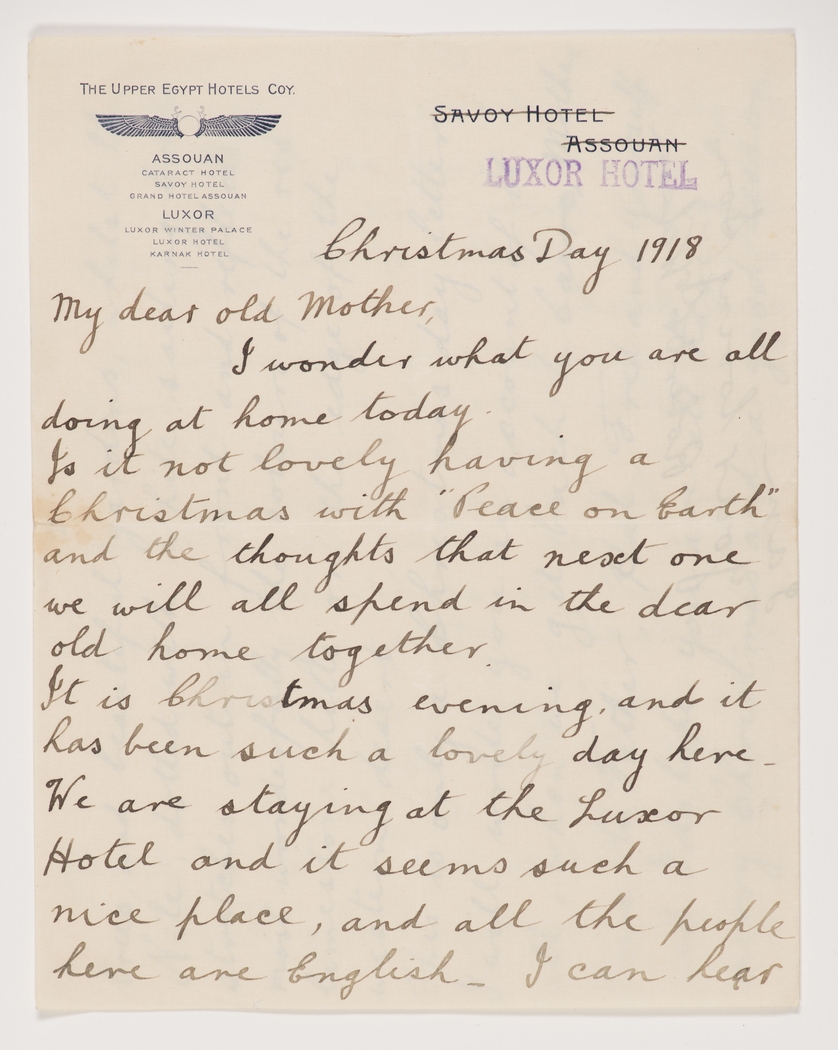 THE UPPER EGYPT HOTELS COY.
ASSOUAN
CATARACT HOTEL
SAVOY HOTEL
GRAND HOTEL ASSOUAN
LUXOR
LUXOR WINTER PALACE
LUXOR HOTEL
KARNAK HOTEL
SAVOY HOTEL
ASSOUAN
LUXOR HOTEL
Christmas Day 1918
My dear old Mother,
I wonder what you are all
doing at home today.
Is it not lovely having a
Christmas with "Peace on Earth"
and the thoughts that next one
we will all spend in the dear
old home together.
It is Christmas evening, and it
has been such a lovely day here_
We are staying at the Luxor
Hotel and it seems such a
nice place, and all the people
here are English_ I can hear